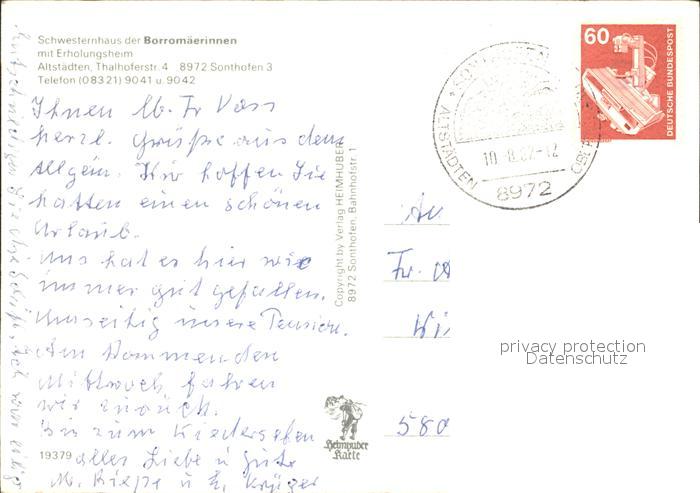 Schwesternhaus der Borromäerinnen
mit Erholungsheim
Altstädten, Thalhoferstr. 4 8972 Sonthofen 3
Telefon (08321) 9041 u. 9042
Ihnen lb. Fr Voss
herzl. Grüße aus dem
Allgeu. Wir hoffen Sie
hatten einen schönen
Urlaub.
Uns hat es hier wie
immer gut gefallen.
unsere Pension.
Am Kommenden
Mittwoch fahren
wir zurück.
Bis zum Wiedersehen
alles Liebe u gute
M. u E. Krüger
19379
Copyright by Verlag HEIMHUBER
8972 Sonthofen, Bahnhofstr. 1
Heimhuber
Karte
ALTSTÄDTEN
8972
60
DEUTSCHE BUNDESPOST
An
Fr.
Wi
580
privacy protection
Datenschutz